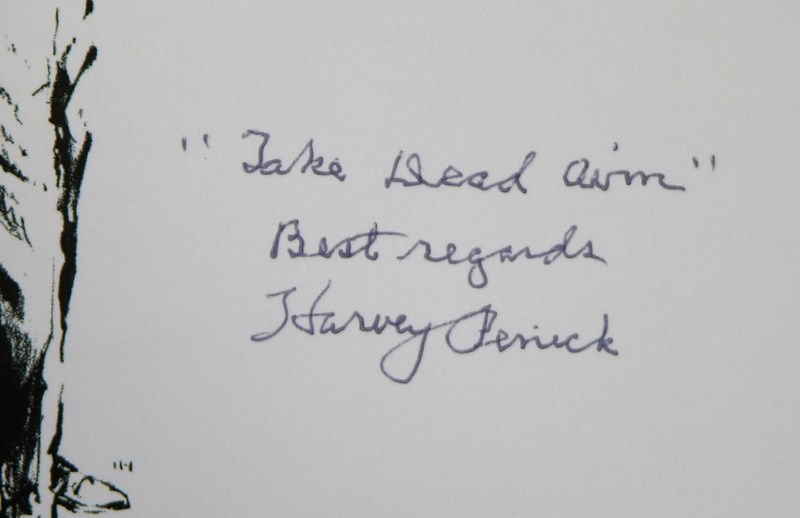 "Take Dead Aim"
Best regards
Harvey Penick